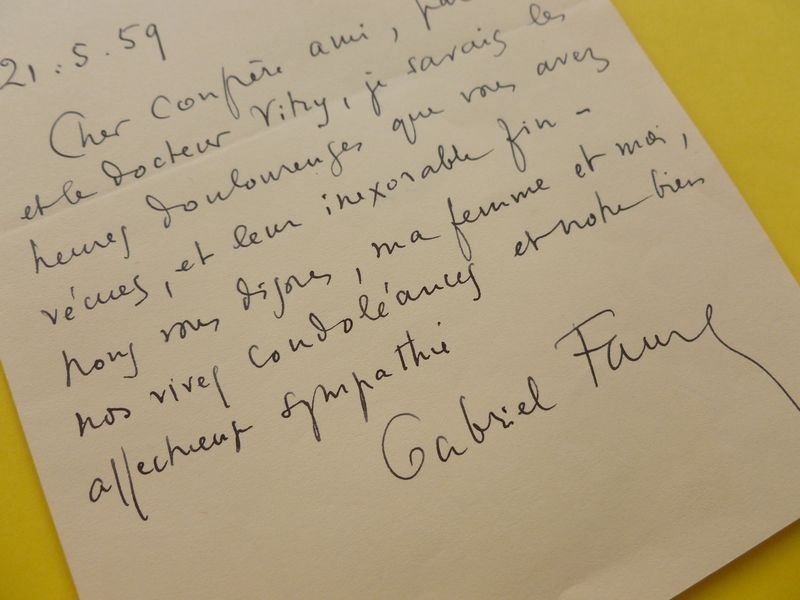 21.5.59
Cher Confrère ami, par
et le docteur Vitry, je savais les
heures douloureuses que vous avez
vécues, et leur inexorable fin -
nous vous disons, ma femme et moi,
nos vives condoléances et notre bien
affectueuse sympathie
Gabriel Faure